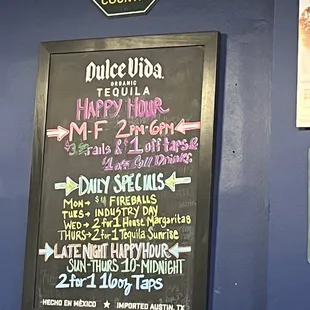 COUNTRY
Dulce Vida
ORGANIC
TEQUILA
HAPPY HOUR
M-F 2PM-6PM
$3 rails & $1 off taps &
$1 off Call Drinks
DAILY SPECIALS
MON → $4 FIREBALLS
TUES → INDUSTRY DAY
WED → 2 for 1 House Margaritas
THURS → 2 for 1 Tequila Sunrise
LATE NIGHT HAPPY HOUR
SUN-THURS 10-MIDNIGHT
2 for 1 16oz Taps
HECHO EN MÉXICO ★ IMPORTED AUSTIN, TX